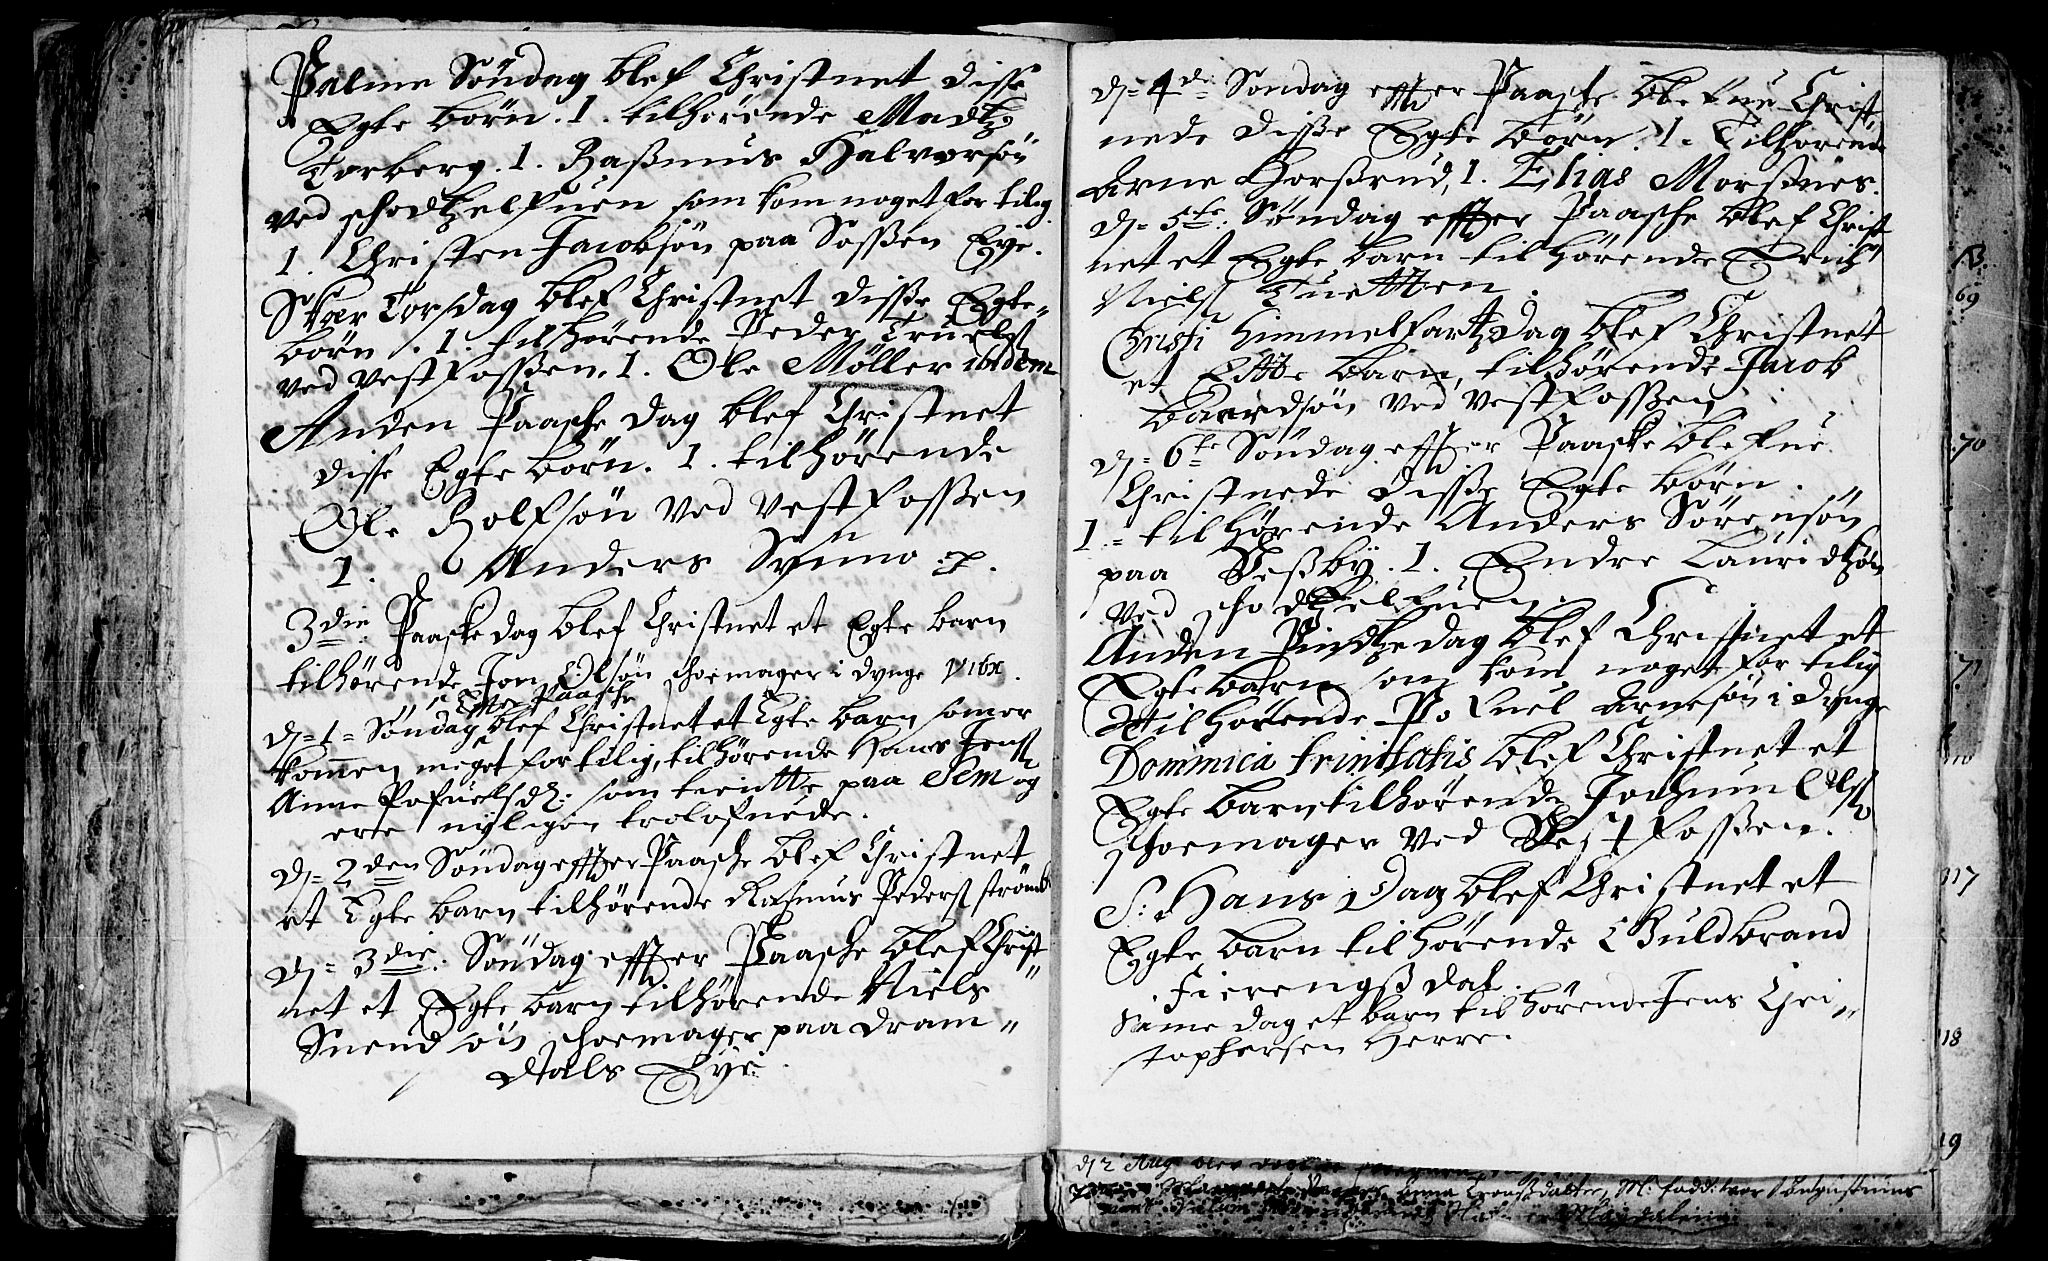 Palme Söndag blef Christnet disse
Egte börn. 1. tilhörende Madtz
Torberg. 1. Rasmus Halvorsön
ved schodtzelfuen som kom noget for tilig
1. Christen Jacobsön paa Sossen Eye.
Skær Torsdag blef Christnet disse Egte
börn. 1. tilhörende Peder Truelss
ved Vestfossen. 1. Ole Möller ibidem
Anden Paasche dag blef Christnet
disse Egte börn. 1. tilhörende
Ole Rolfsön ved vestfossen
1. Anders
3die Paaske dag blef Christnet et Egte barn
tilhörende Jon Olsön schoemager i dynge
Efter Paasche
d. 1 Söndag blef Christnet et Egte barn som er
kommen meget for tilig, tilhörende Hans Jenss
Anne Pofuelsd: som tiente paa Sem og
ere nyligen trolofuede.
d. 2den Söndag effter Paasche blef Christnet
et Egte barn tilhörende Rasmus Pederss ströms
d. 3die Söndag effter Paasche blef Christ
net et Egte barn tilhörende Niels
Suendsön schoemager paa Dram
dals Eye
d. 4de Söndag effter Paasche blefue Christ
nede disse Egte börn. 1. Tilhörende
Arne Horssrud, 1. Elias Morssnes.
d. 5te Söndag effter Paasche blef Christ
net et Egte barn tilhörende Erich
Nielss Tuetten.
Christi Himmelfartz Dag blef Christnet
et Egte barn, tilhörende Jacob
Baardsön ved vestfossen
d. 6te Söndag effter Paaske blefue
Christnede disse Egte börn.
1. tilhörende Anders Sörensön
paa Besseby. 1. Endre Lauridtzön
ved schodtzelfuen.
Anden Pindtzedag blef Christnet et
Egte barn som kom noget for tilig
tilhörende Pofuel Arnesön i dynge
Dominica trinitatis blef Christnet et
Egte barn tilhörende Jochum Olss
schoemager ved Vestfossen.
S: Hans Dag blef Christnet et
Egte barn tilhörende Guldbrand
Fierengssdal.
Same dag et barn tilhörende Jens Chri
stophersen Herre.
69
70
71
117
18
19